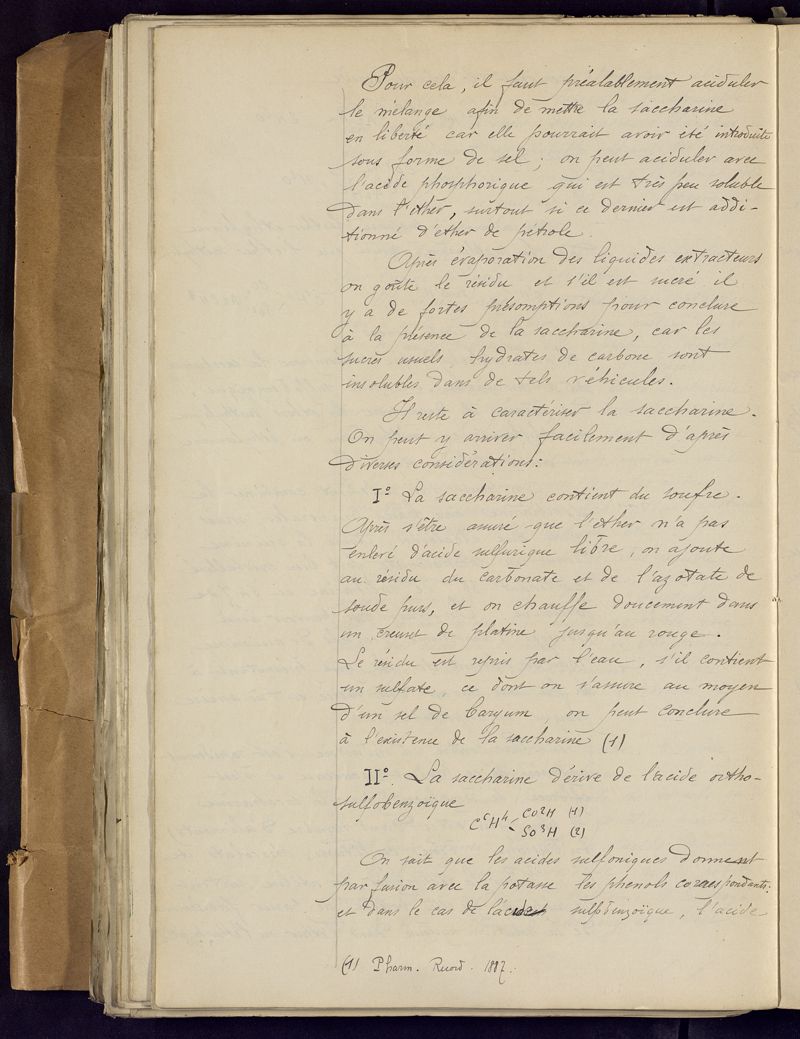 Pour cela, il faut préalablement aciduler
le mélange afin de mettre la saccharine
en liberté car elle pourrait avoir été introduite
sous forme de sel ; on peut aciduler avec
l'acide phosphorique qui est très peu soluble
dans l'éther, surtout si ce dernier est addi-
tionné d'éther de pétrole.
Après évaporation des liquides extracteurs
on goûte le résidu et s'il est sucré il
y a de fortes présomptions pour conclure
à la présence de la saccharine, car les
sucres usuels, hydrates de carbone sont
insolubles dans de tels véhicules.
Il reste à caractériser la saccharine.
On peut y arriver facilement d'après
diverses considérations :
I° La saccharine contient du soufre.
Après s'être assuré que l'éther n'a pas
enlevé d'acide sulfurique libre, on ajoute
au résidu du carbonate et de l'azotate de
soude purs, et on chauffe doucement dans
un creuset de platine jusqu'au rouge.
Le résidu est repris par l'eau, s'il contient
un sulfate, ce dont on s'assure au moyen
d'un sel de baryum, on peut conclure
à l'existence de la saccharine (1)
II°. La saccharine dérive de l'acide ortho-
sulfobenzoïque
C6H4 < CO2H (1)
SO3H (2)
On sait que les acides sulfoniques donnent
par fusion avec la potasse les phénols correspondants ;
et dans le cas de l'acide sulfobenzoïque, l'acide
(1) Pharm. Record. 1887.